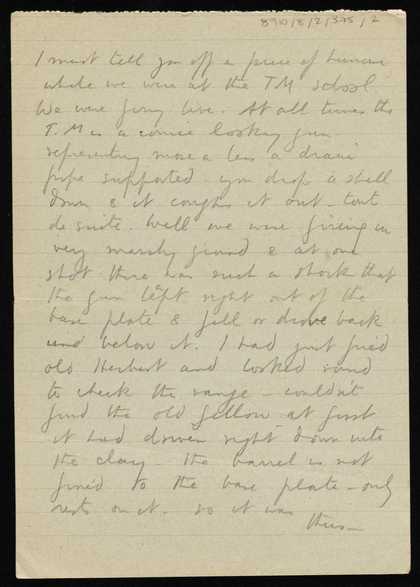 890/8/2/325/2
I must tell you off a piece of humour
while we were at the TM school.
We were firing live. At all times the
T.M is a comic looking gun
representing more or less a drain
pipe supported. you drop a shell
down & it coughs it out - tout
de suite. Well we were firing in
very marshy ground & at one
shot there was such a shock that
the gun left right out of the
base plate & fell or drove back
and below it. I had just fired
old Herbert and looked round
to check the range - couldn't
find the old fellow at first
it had driven right down into
the clay - the barrel is not
fixed to the base plate - only
rests on it. so it was
thus -